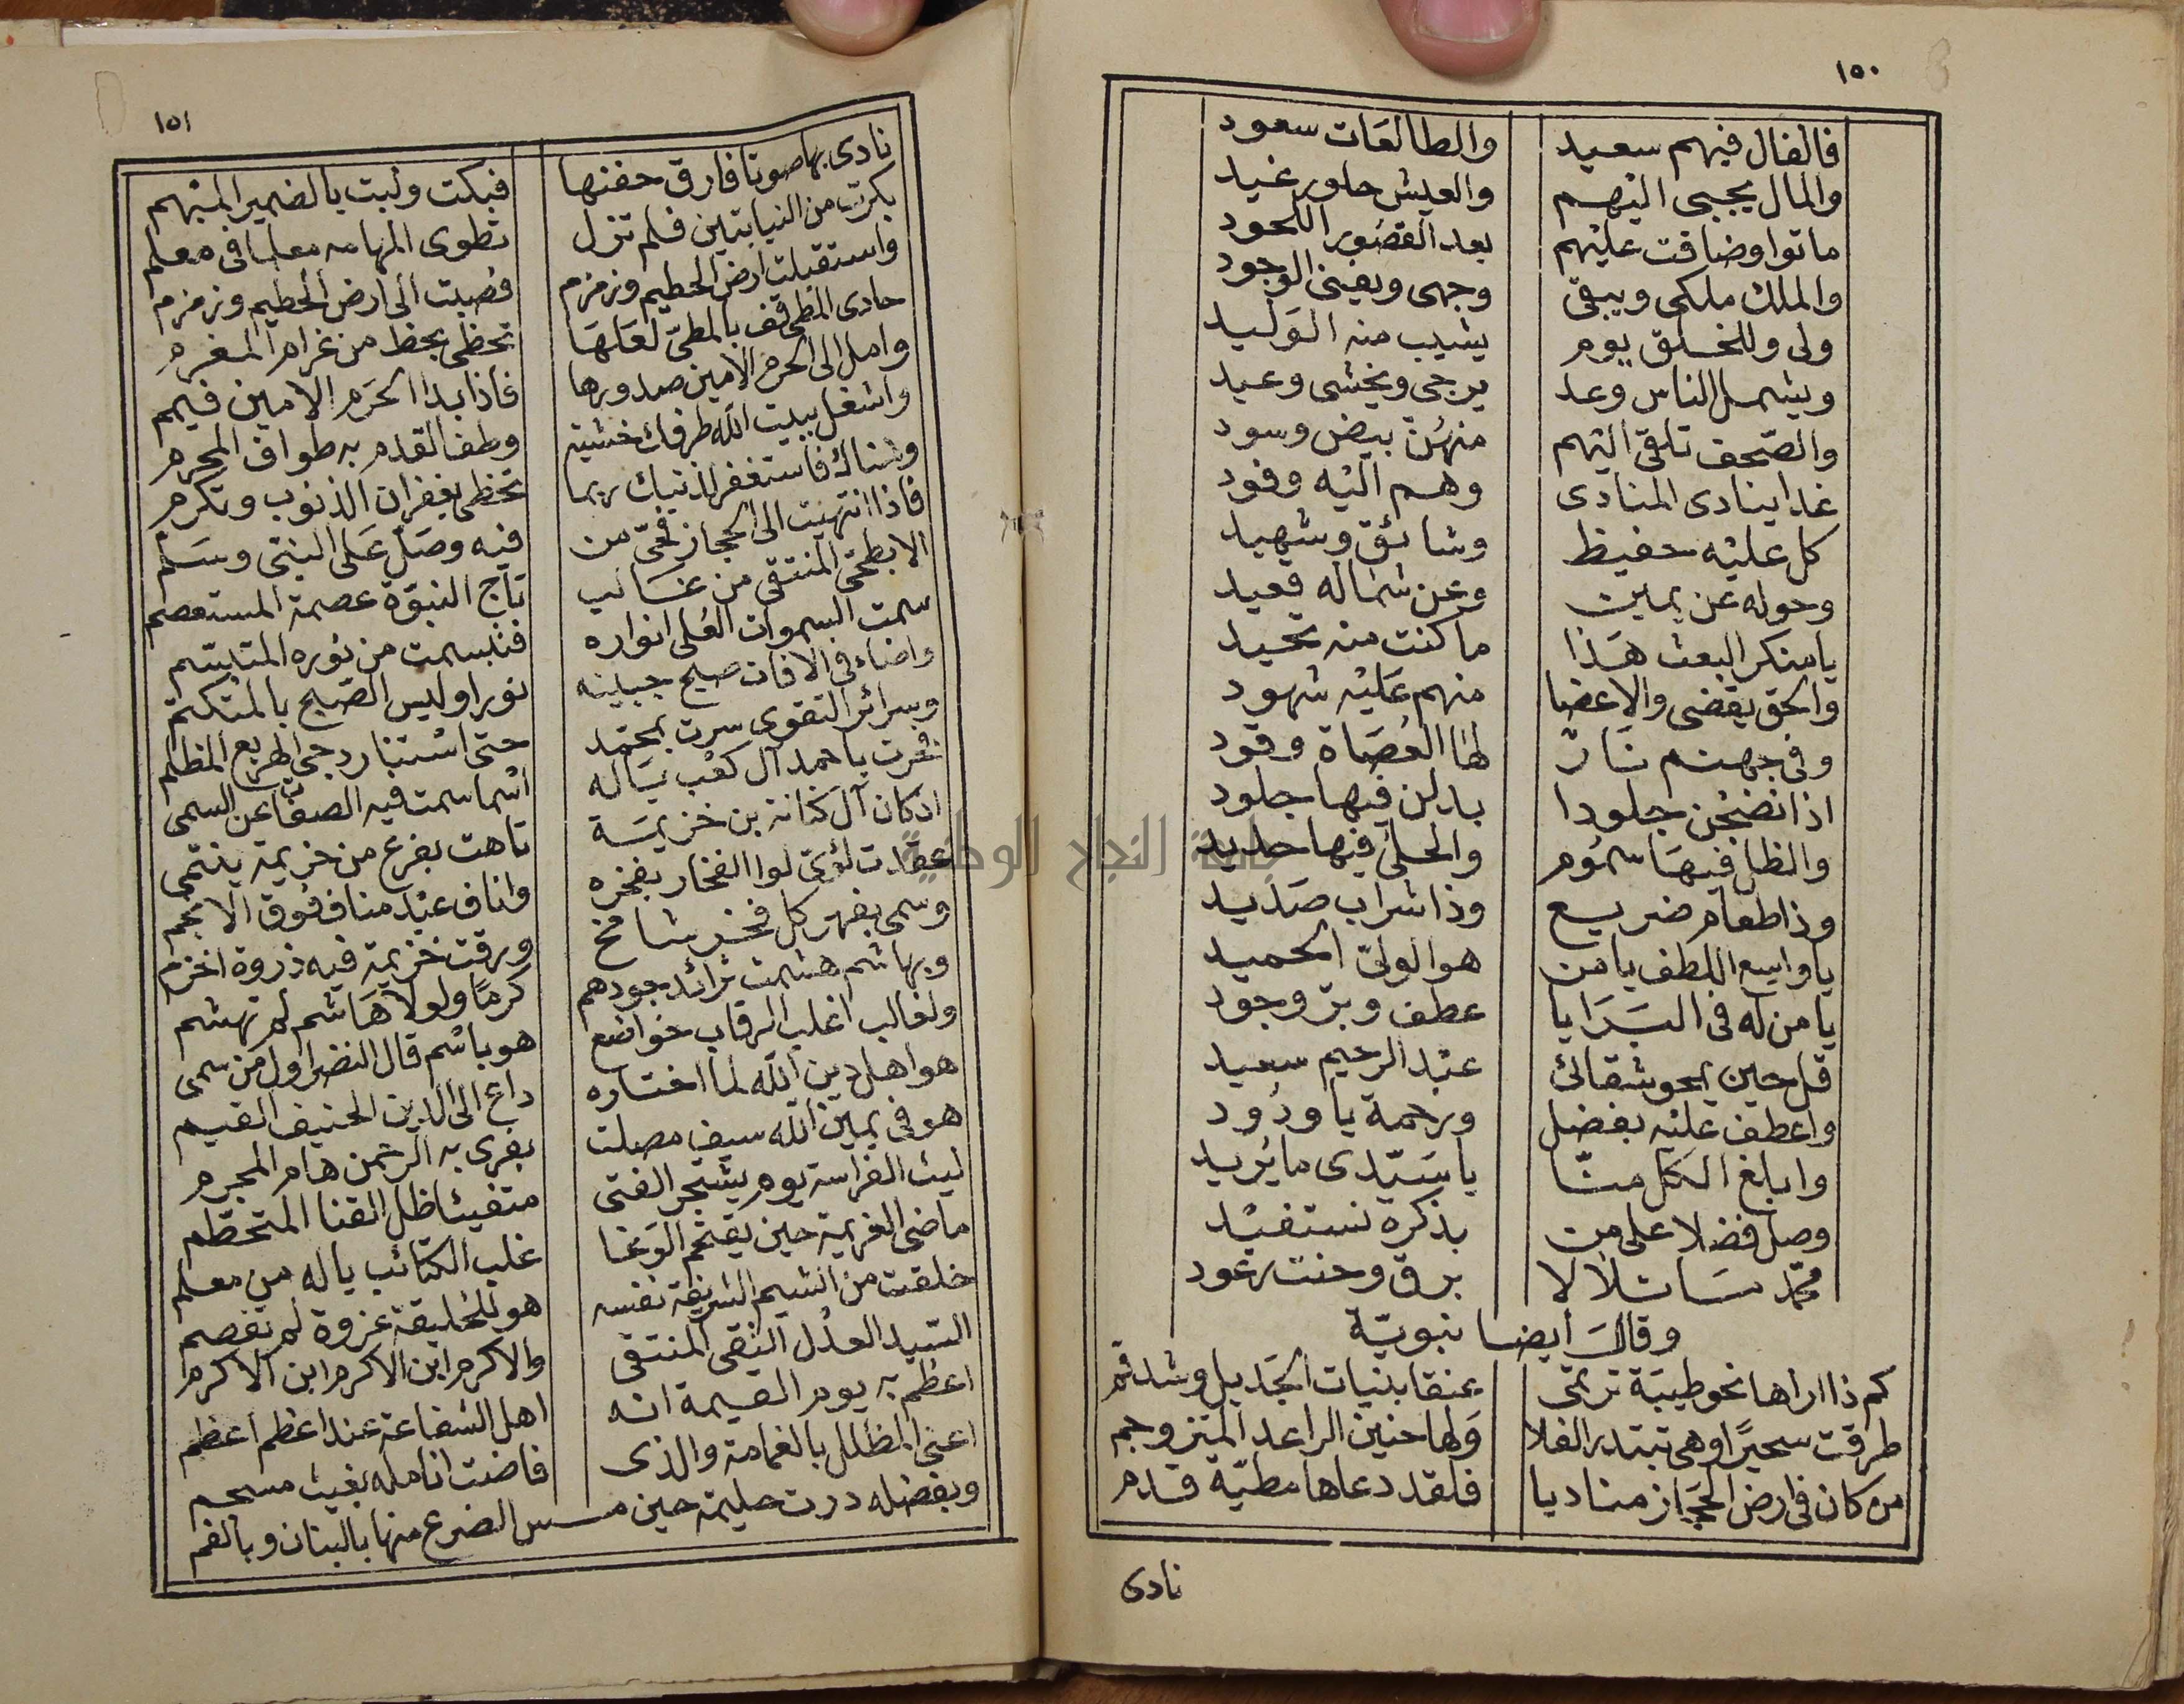 ١٥٠
فالفال فيهم سعيد والطالعات سعود
والمال يجبى اليهم والعيش حلو رغيد
ماتوا وضاقت عليهم بعد القصور اللحود
والملك ملكى ويبقى وجهى ويفنى الوجود
ولى وللخلق يوم يشيب منه الوليد
ويشمل الناس وعد يرجى ويخشى وعيد
والصحف تلقى اليهم منهن بيض وسود
غدا ينادى المنادى وهم اليه وفود
كل عليه حفيظ وشائق وشهيد
وحوله عن يمين وعن شماله قعيد
يا منكر البعث هذا ما كنت منه تحيد
والحق يقضى والاعضا منهم عليه شهود
وفى جهنم نار لها العصاة وقود
اذا نضجن جلودا بدلن فيها جلود
والظل فيها سموم والحلى فيها حديد
وذا طعام ضريع وذا شراب صديد
يا واسع اللطف يا من هو الولى الحميد
يا من له فى البرايا عطف وبر وجود
قل حين يمحو شقائى عبد الرحيم سعيد
واعطف عليه بفضل ورحمة يا ودود
وابلغ الكل منا يا سيدى ما يريد
وصل فضلا على من بذكره نستفيد
محمد ما تلالا برق وحنت رعود
وقال ايضا نبوية
كم ذا اراها نحو طيبة ترتمى عنقا بنيات الجديل وشدقم
طرقت سحيرا وهى تبتدر الفلا ولها حنين الراعد المتزوجم
من كان فى ارض الحجاز مناديا فلقد دعاها مطية قدم
نادى
١٥١
نادى بها صوتا فارق جفنها فبكت ولبت بالضمير المبهم
بكرت من النيابتين فلم تزل تطوى المهامه معلما فى معلم
واستقبلت ارض الحطيم وزمزم فصبت الى ارض الحطيم وزمزم
حادى المطى قف بالمطى لعلها تحظى بحظ من غرام المغرم
وامل الى الحرم الامين صدورها فاذا بدا الحرم الامين فيمم
واشغل ببيت الله طرفك خشية وطف القدم به طواف المحرم
وهناك فاستغفر لذنبك ربما تحظى بغفران الذنوب وتكرم
فاذا انتهيت الى الحجاز فحى من فيه وصل على النبى وسلم
الابطحى المنتقى من غالب تاج النبوة عصمة المستعصم
سمت السموات العلى انواره فتبسمت من نوره المتبسم
واضاء فى الافات صبح جبينه نورا وليس الصبح بالمتكتم
وسرائر التقوى سرت بمحمد حتى استنار دجى الهزيع المظلم
فخرت باحمد آل كعب ياله اسما سمت فيه الصفات عن السمى
اذ كان آل كنانة بن خزيمة تاهت بفرع من خزيمة ينتمى
عقدت لؤى لوا الفخار بفخره واناف عبد مناف فوق الانجم
وسمى بفهر كل فخر شامخ ورقت خزيمة فيه ذروة اخزم
وبهاشم هشمت ثرائد جودهم كرما ولولا هاشم لم تهشم
ولغالب اغلب الرقاب خواضع هو باسم قال النضر اول من سمى
هو اهل دين الله لما اختاره داع الى الدين الحنيف القيم
هو فى يمين الله سيف مصلت يفرى به الرحمن هام المجرم
ليث الفراسة يوم يشتجر الفتى متفيئا ظل القنا المتحطم
ماضى العزيمة حين يقتحم الوغا غلب الكتائب ياله من معلم
خلقت من الشيم الشريفة نفسه هو للخليقة عزوة لم تفصم
السيد العدل النقى المنتقى والاكرم ابن الاكرم ابن الاكرم
اعظم به يوم القيمة انه اهل الشفاعة عند اعظم اعظم
اعنى المظلل بالغمامة والذى فاضت انامله بغيث مسجم
وبفضله درت حليمة حين مس الضرع منها بالبنان وبالفم